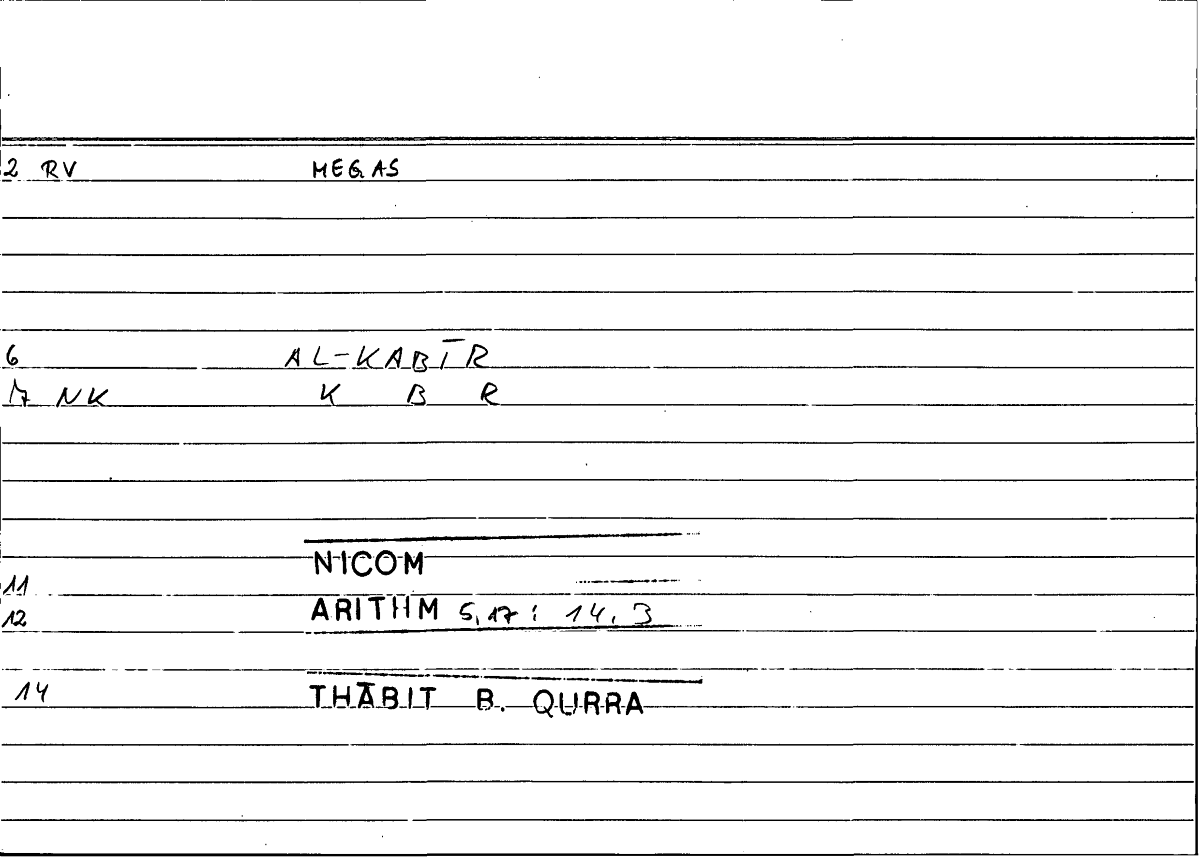 2 RV MEGAS
6 AL-KABĪR
17 NK K B R
NICOM
11
12 ARITHM 5,17 : 14,3
14 THĀBIT B. QURRA